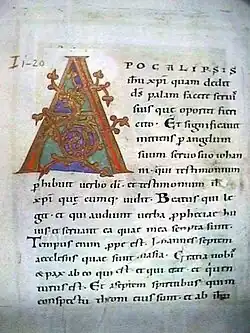 I 1-20
APOCALIPSIS
ihu xpi quam dedit
ds palam facere servis
suis que oportet fieri
cito. Et significavit
mittens p angelum
suum servo suo iohan
ni. qui testimonium
phibuit verbo di. et testimonium ihu
xpi que cumq vidit. Beatus qui le
git. et qui audiunt verba pphetiae hui
us et servant ea quae in ea scripta sunt.
Tempus enim ppe est. Iohannes septem
ecclesiis quae sunt in asia. Gratia vobis
& pax ab eo qui est. et qui erat. et qui ven
turus est. Et a septem spiritibus qui in
conspectu throni eius sunt. et ab ihu